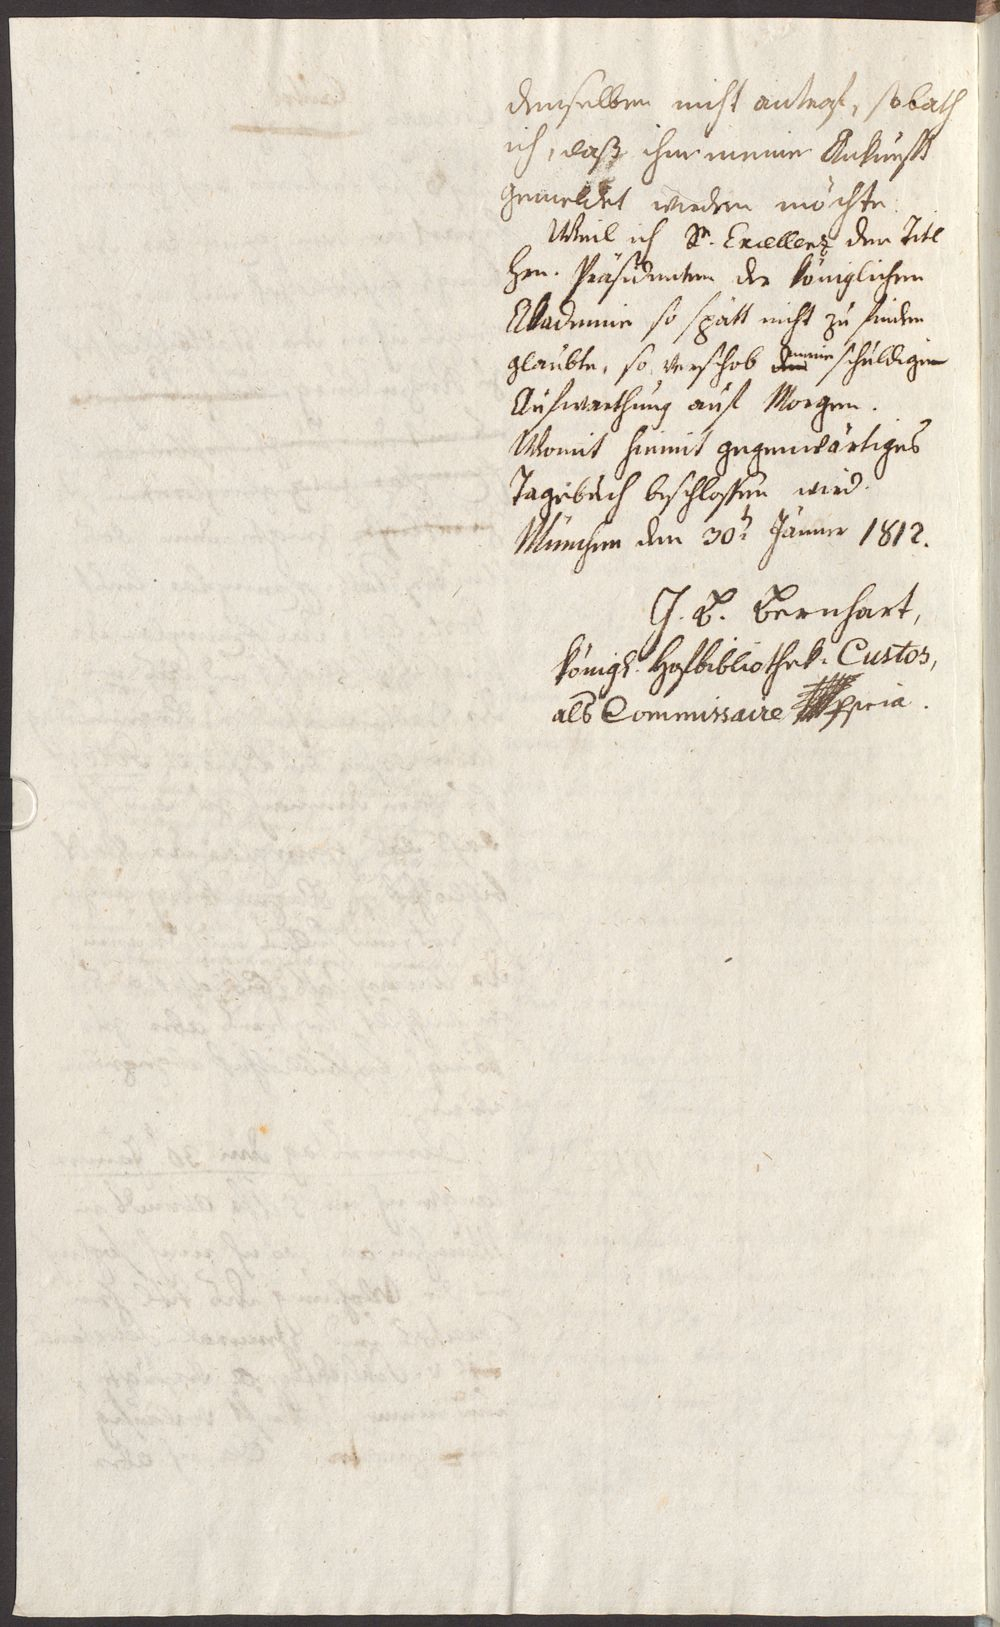 demselben nicht antraf, so bath
ich, daß ihm meine Ankunft
gemeldet werden möchte.
Weil ich Sr. Excellenz den Titl
Hrn. Präsidenten der königlichen
Akademie so spätt nicht zu finden
glaubte, so verschob meine schuldige
Aufwarthung auf Morgen.
Womit hiemit gegenwärtiges
Tagebuch beschlossen wird.
München den 30t Jänner 1812.
J. B. Bernhart,
königl. Hofbibliothek-Custos,
als Commissaire ppria.